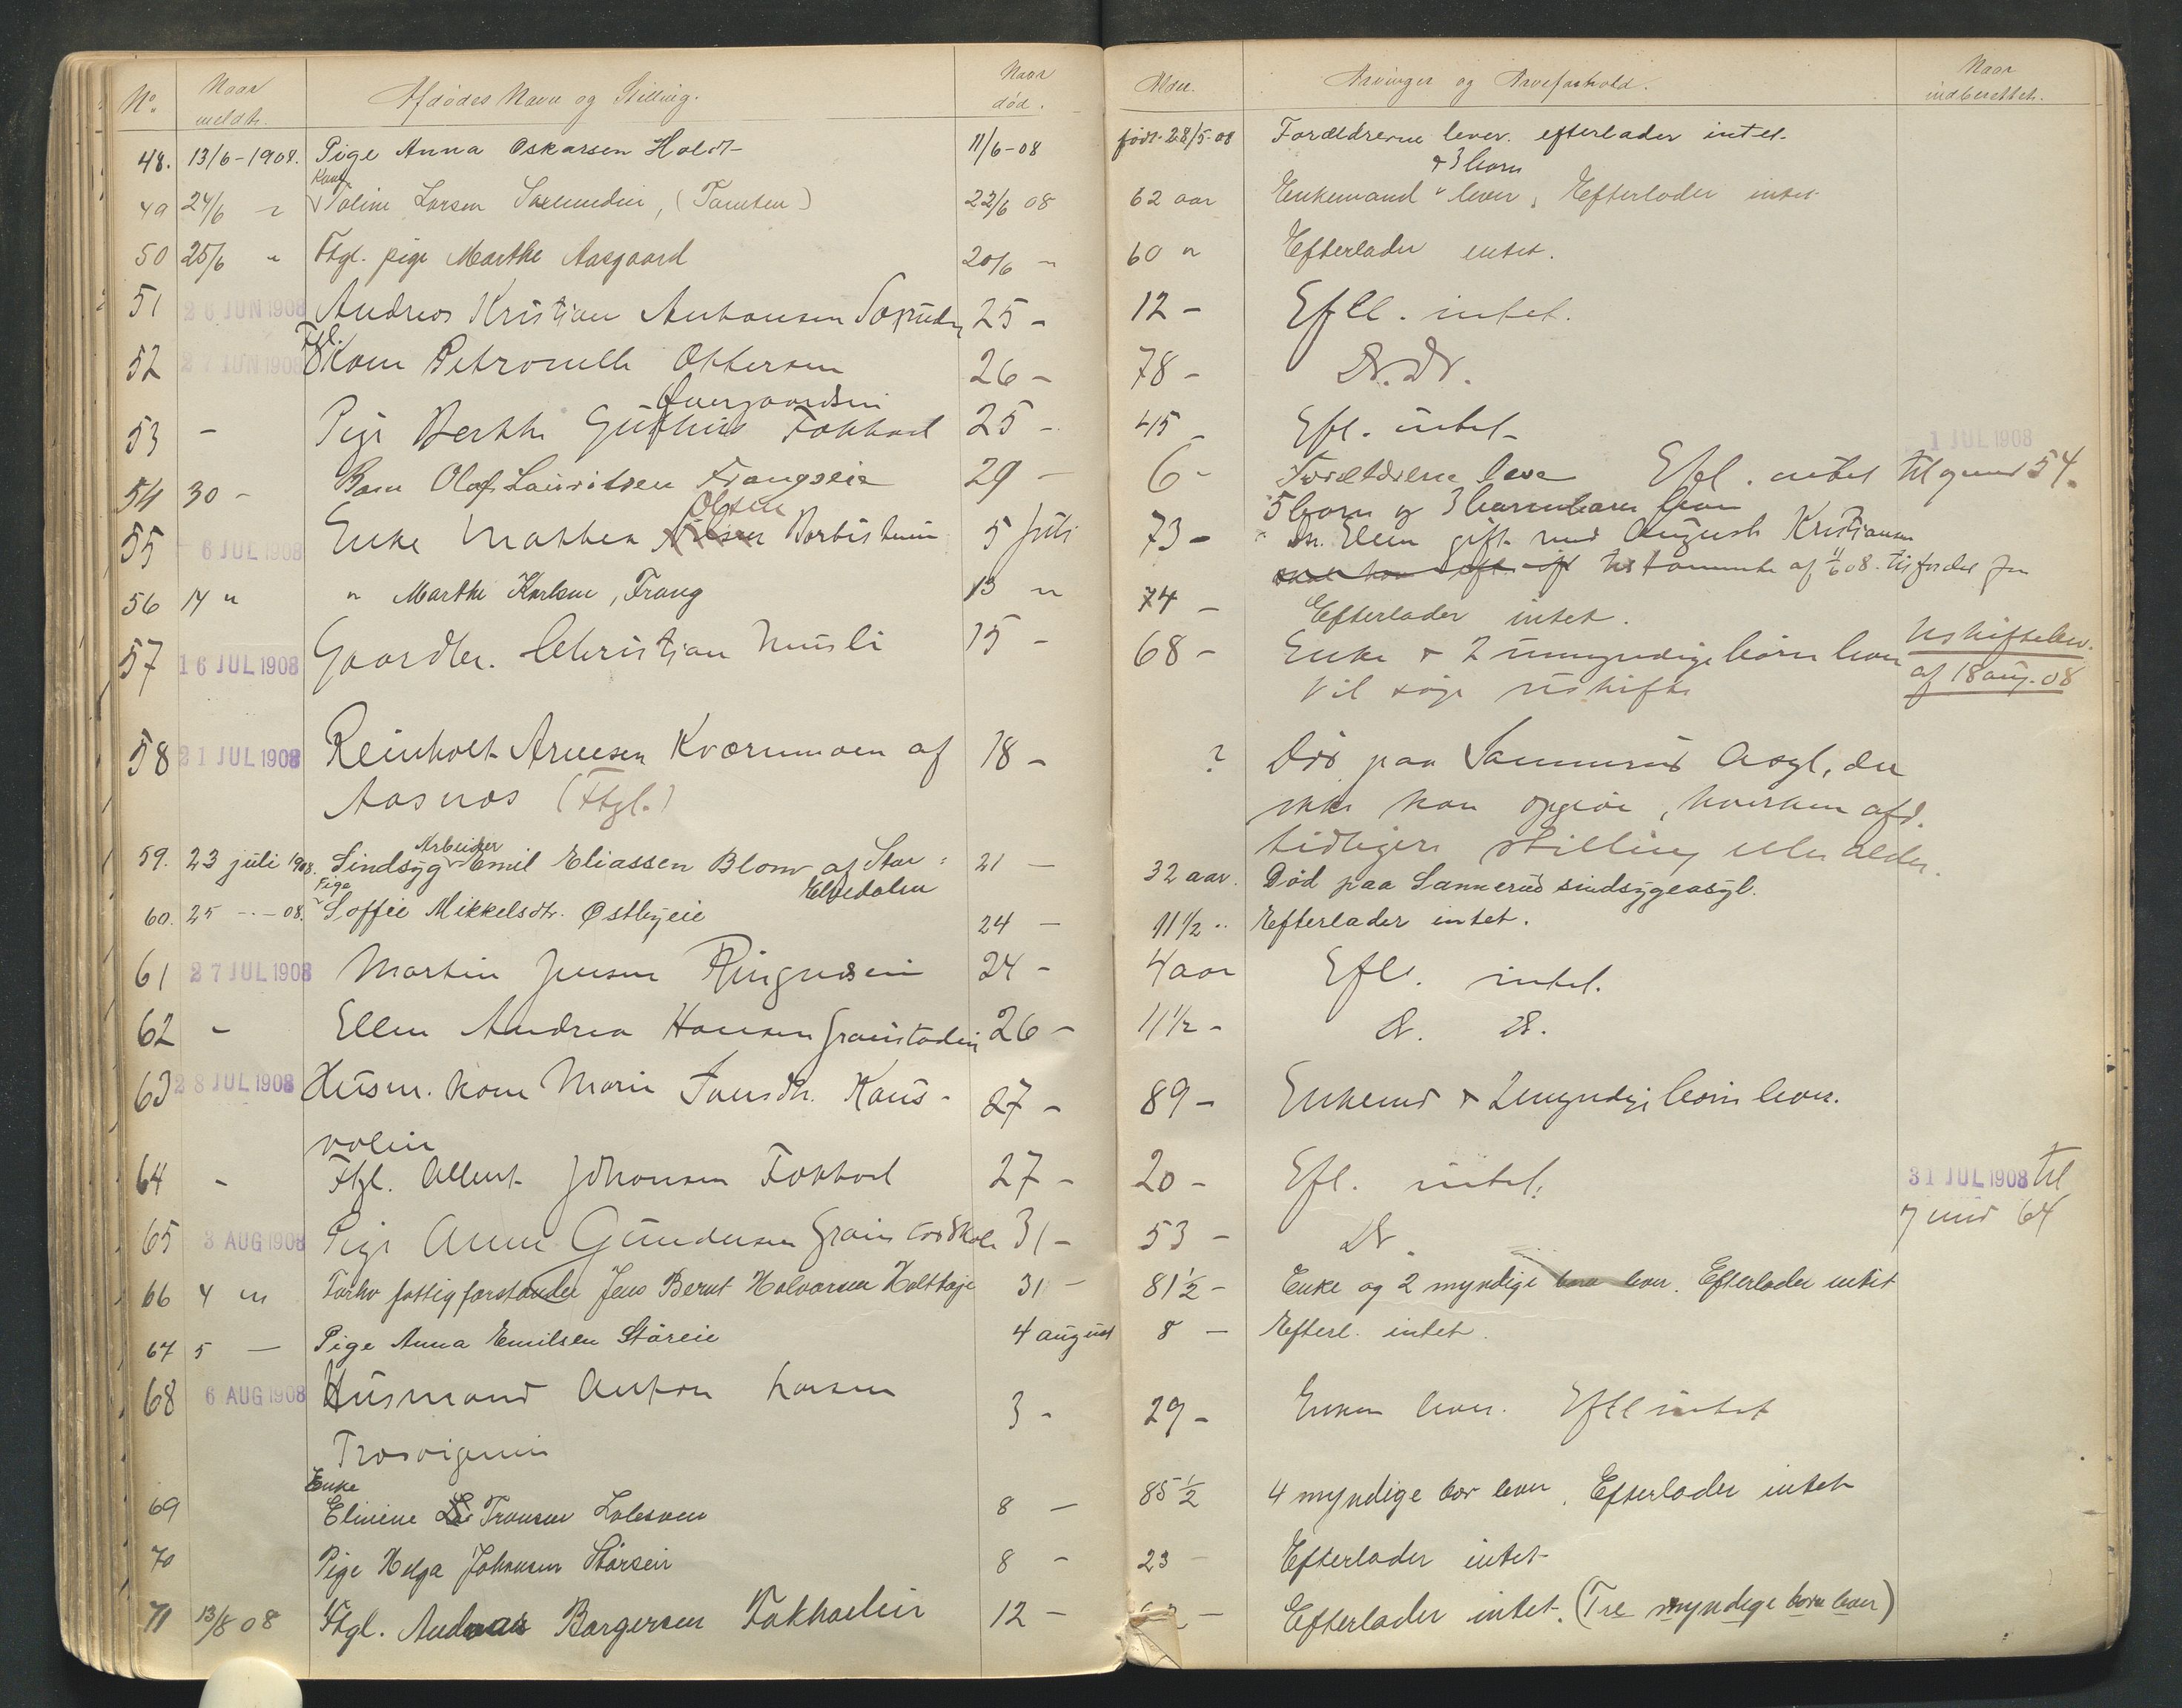 No. Naar meldt. Afdødes Navn og Stilling. Naar død. Alder. Arvinger og Arveforhold. Naar indberettet.
48. 13/6-1908. Pige Anna Oskarsen Holdt 11/6-08 født 28/5-08 Forældrerne lever. efterlader intet.
Kone + 3 born
49 24/6 " Toline Larsen (Tomten) 22/6 08 62 aar Enkemand lever, Efterlader intet
50 25/6 " Ftgl. pige Marthe Aasgaard 20/6 " 60 " Efterlader intet.
51 26 JUN 1908 Andreas Kristian Antonsen 25 - 12 - Efll. intet.
Ftgl.
52 27 JUN 1908 Kone Petronelle Ottersen 26 - 78 - Do. Do.
53 - Pige Berthe 25 - 45 - Efl. intet -
1 JUL 1908
54 30 - Barn Olaf Lauritsen Frangseie 29 - 6 - Forældrene leve Efl. intet til og med 54.
Olsen 5 born og 3 barnebarn lever
55 6 JUL 1908 Enke Mathea Nilsen 5 Juli 73 - Dr. Elen gift med August Kristiansen
testamente af 11/6 08. til fordel for
56 14 " " Marthe Karlsen, Frang 13 " 74 - Efterlader intet.
57 16 JUL 1908 Gaardbr. Christian Musli 15 - 68 - Enke + 2 umyndige børn lever Uskiftebev.
Vil søge uskifte af 18 aug. 08
58 21 JUL 1908 Reinholt Arnesen Kværnmoen af 18 - ? Død paa Sannerud Asyl, der
Aasnes (Ftgl.) ikke kan opgive, hverken afd.
tidligere stilling eller alder.
Arbeider
59. 23 juli 1908. Sindsyg Emil Eliassen Blom af Stor- 21 - 32 aar. Død paa Sannerud sindsygeasyl.
Pige Elvedalen
60. 25 - - 08. Soffie Mikkelsdtr. Østbyeie 24 - 11 1/2 " Efterlader intet.
61 27 JUL 1908 Martin Jensen Ringneseie 24 - 4 aar Efl. intet.
62 - Ellen Andrea Hansen 26 - 11 1/2 - Do. Do.
63 28 JUL 1908 Husm. kone Marie 27 - 89 - Enkemd + 2 myndige børn lever.
64 - Ftgl. Albert Johansen 27 - 20 - Efl. intet. 31 JUL 1908 til
og med 64
65 3 AUG 1908 Pige Anne Gundersen 31 - 53 - Do.
66 4 " Forhv fattigforstander Jens Bernt Halvorsen 31 - 81 1/2 - Enke og 2 myndige born lever. Efterlader intet
67 5 - Pige Anna Emilsen Støreie 4 august 8 - Efterl. intet.
68 6 AUG 1908 Husmand Anton Larsen 3 - 29 - Enken lever. Efll intet
Trosvigeneie
Enke
69 Elinine Tronsen 8 - 85 1/2 4 myndige bor lever. Efterlader intet
70 Pige Helga Johansen Størseie 8 - 23 - Efterlader intet
71 13/8 08 Ftgl. Andreas Borgersen 12 - Efterlader intet. (Tre myndige born lever)